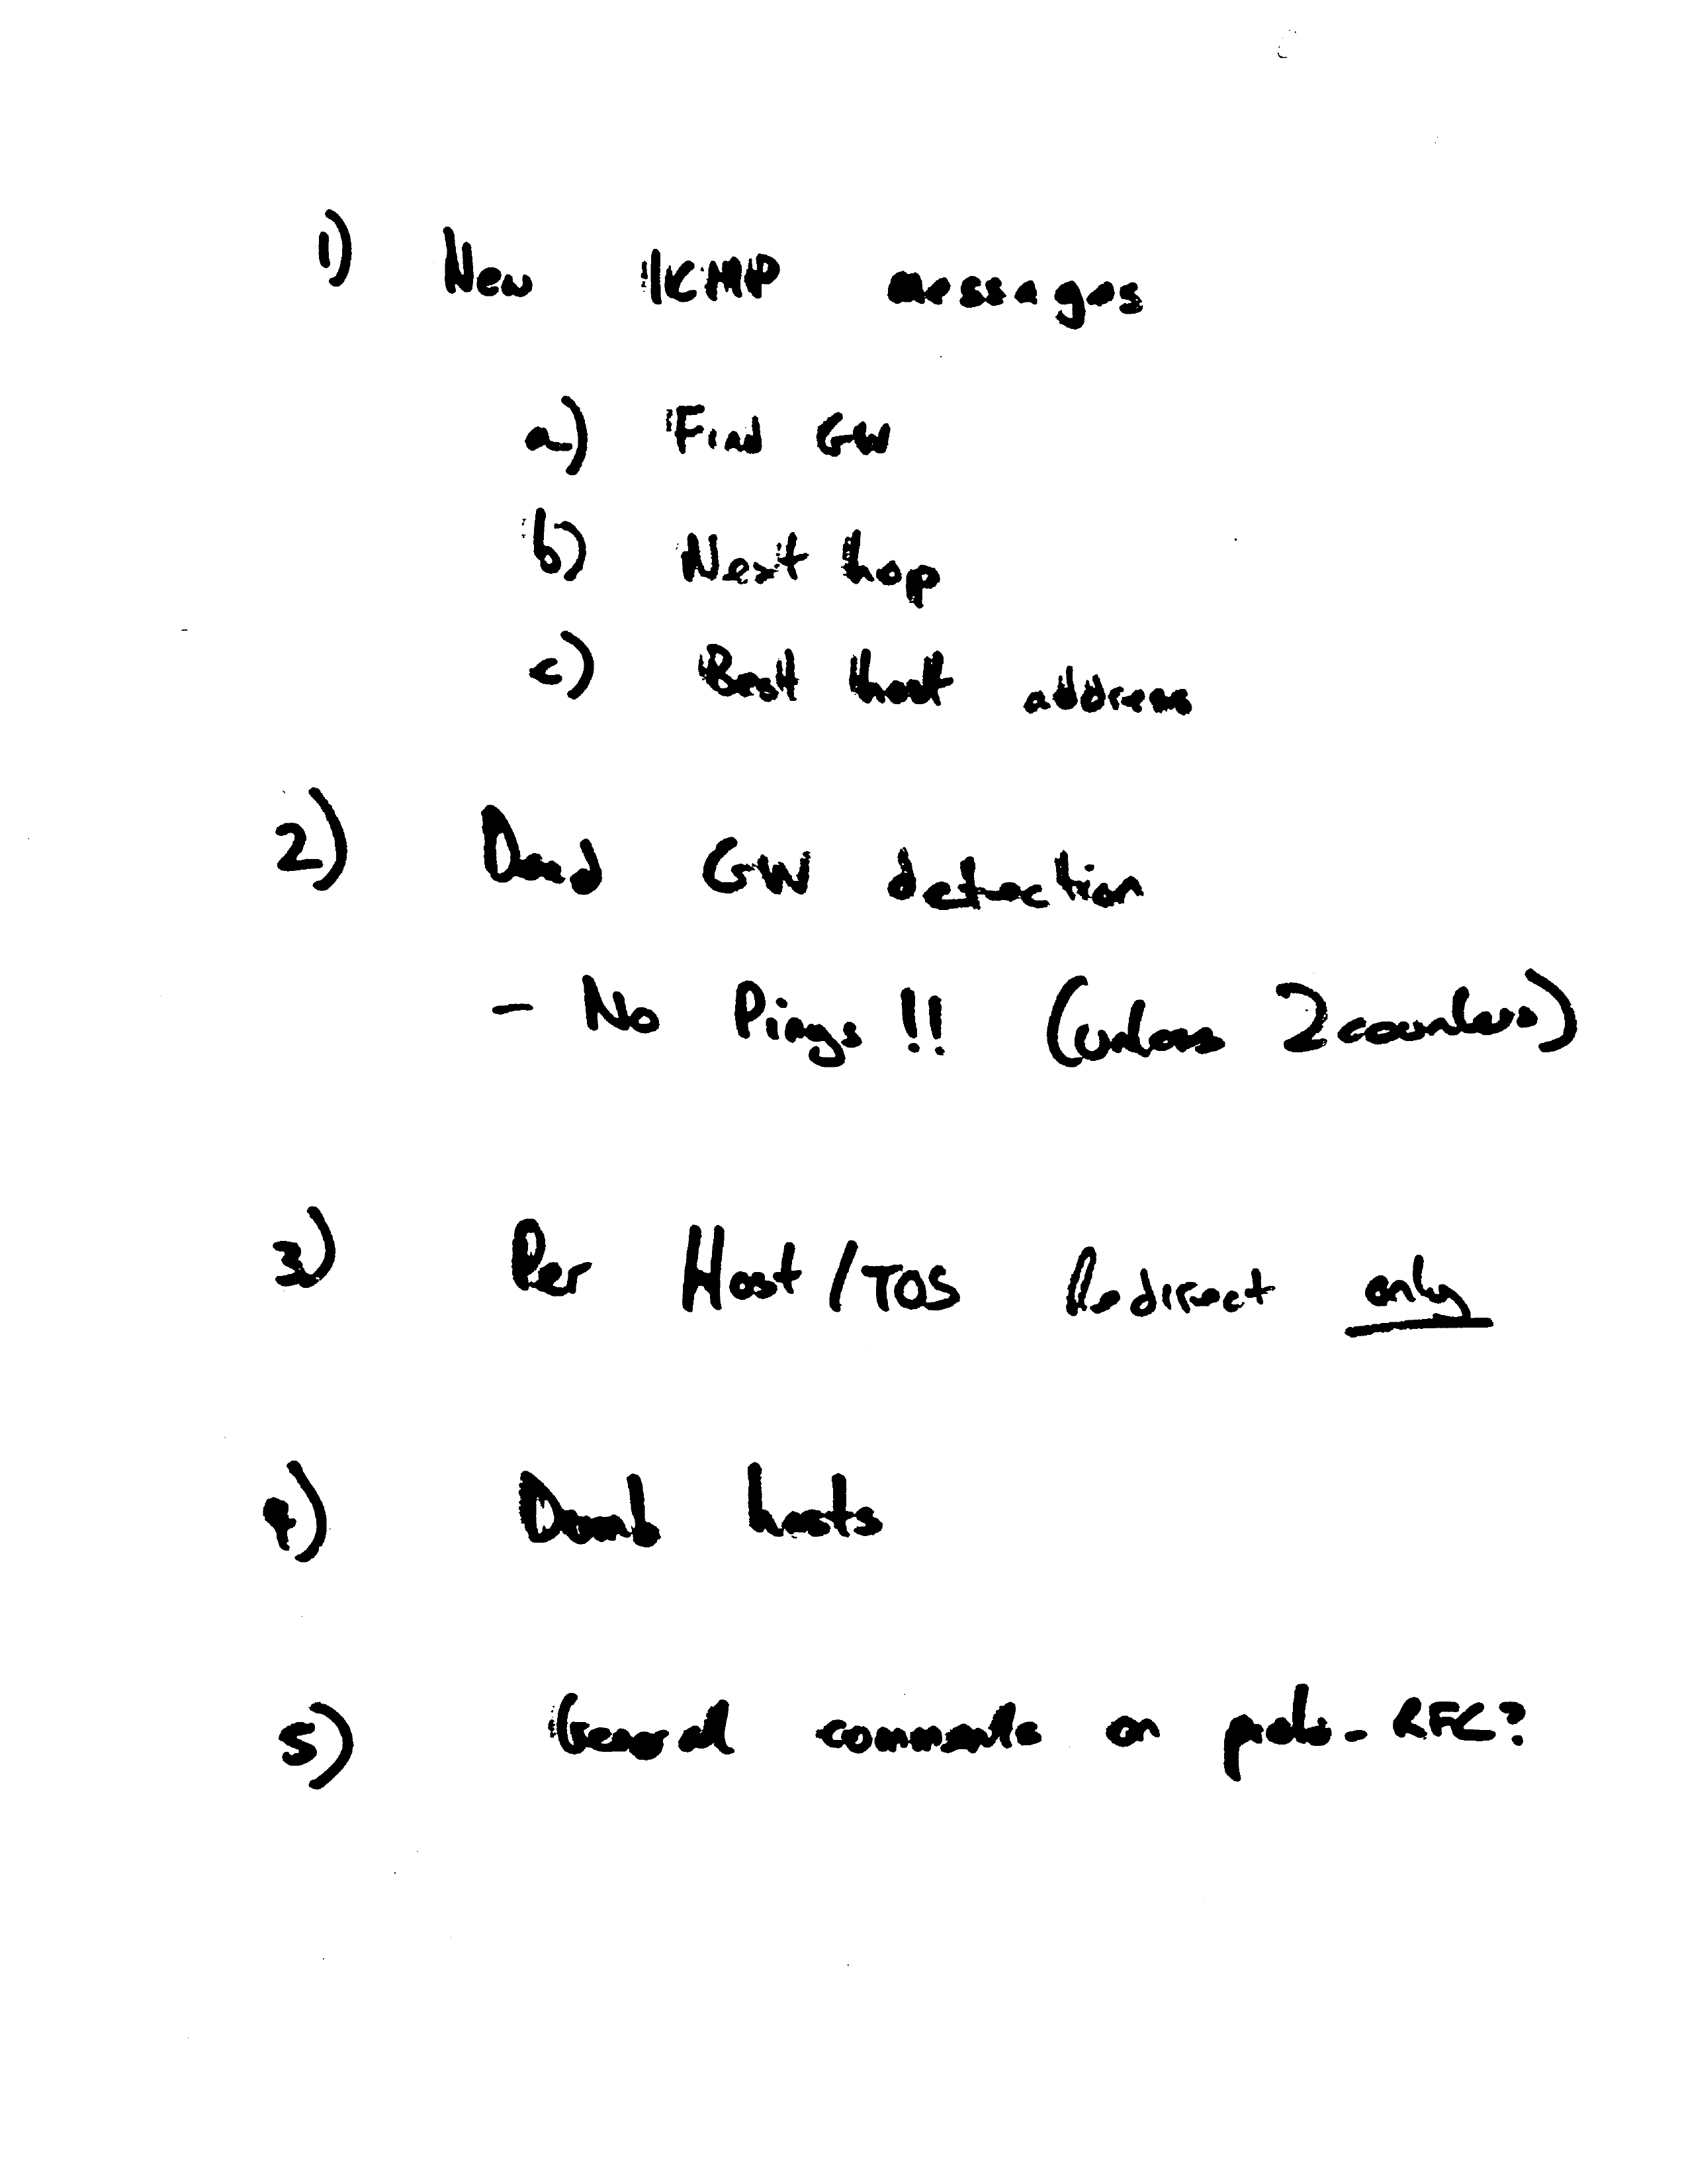 1) New ICMP messages
a) Find GW
b) Next hop
c) Best host address
2) Dead GW detection
- No Pings!! (unless 2 counters)
3) Per Host/TOS Redirect only
4) Dumb hosts
5) General comments on proto-RFC?